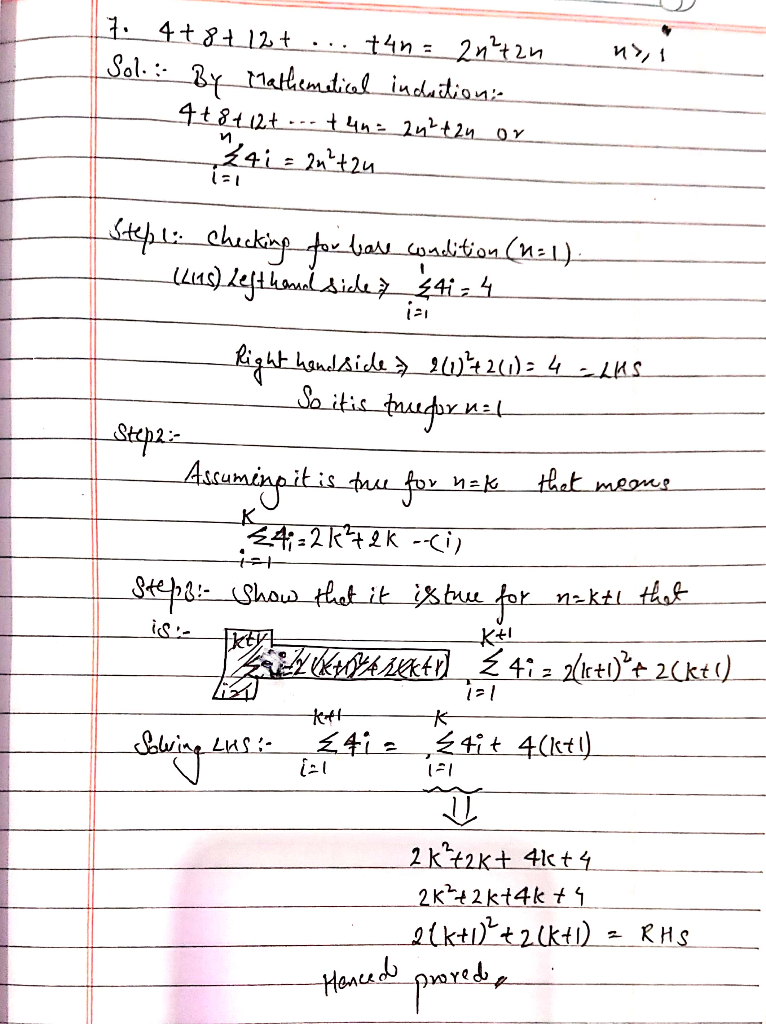 7. 4+8+12+ ... +4n = 2n²+2n n≥1
Sol.:- By Mathematical induction:-
4+8+12+ --- +4n = 2n²+2n or
n∑i=1 4i = 2n²+2n
Step1:- Checking for base condition (n=1).
(LHS) Left hand side ⇒ 1∑i=1 4i = 4
Right hand side ⇒ 2(1)²+2(1) = 4 = LHS
So it is true for n=1
Step2:-
Assuming it is true for n=k that means
K∑i=1 4i = 2K²+2K --(i)
Step3:- Show that it is true for n=k+1 that
is:- K+1∑i=1 4i = 2(k+1)²+2(k+1)
Solving LHS:- K+1∑i=1 4i = K∑i=1 4i + 4(k+1)
⇓
2K²+2K+4K+4
2K²+2K+4K+4
2(K+1)²+2(K+1) = RHS
Henced proved.